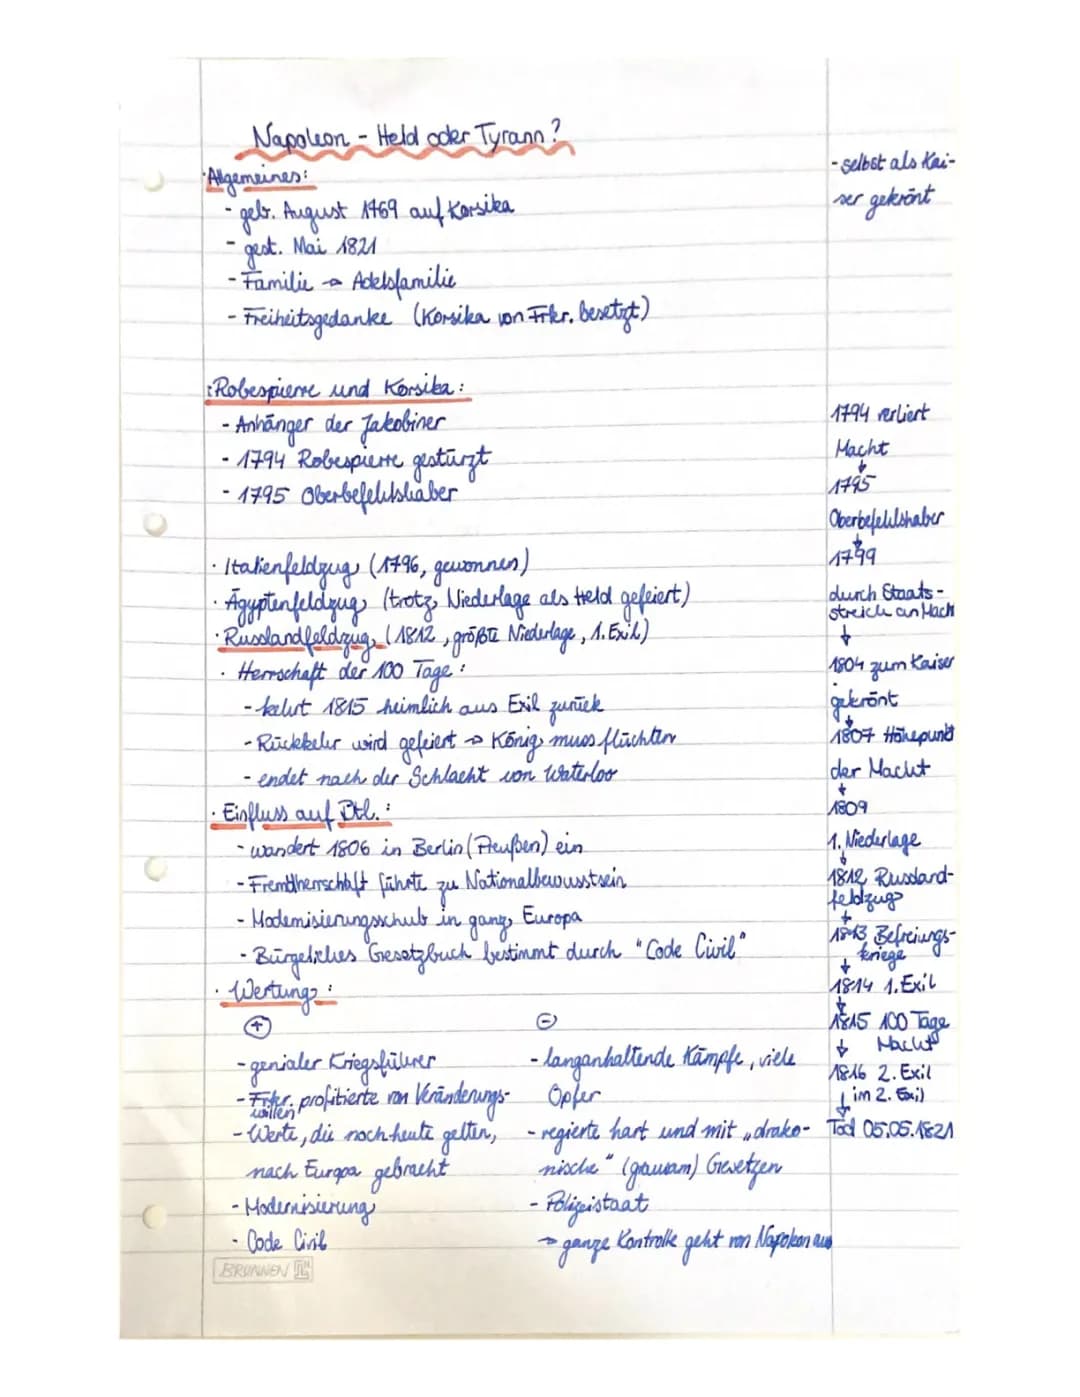 Napoleon - Held oder Tyrann?
· Allgemeines:
- geb. August 1769 auf Korsika
- gest. Mai 1821
- Familie → Adelsfamilie
- Freiheitsgedanke (Korsika von Frkr. besetzt)
· Robespierre und Korsika:
- Anhänger der Jakobiner
- 1794 Robespierre gestürzt
- 1795 Oberbefehlshaber
· Italienfeldzug (1796, gewonnen)
· Ägyptenfeldzug (trotz Niederlage als Held gefeiert)
· Russlandfeldzug (1812, größte Niederlage, 1. Exil)
· Herrschaft der 100 Tage:
- kehrt 1815 heimlich aus Exil zurück
- Rückkehr wird gefeiert → König muss flüchten
- endet nach der Schlacht von Waterloo
· Einfluss auf Dtl.:
- wandert 1806 in Berlin (Preußen) ein
- Fremdherrschaft führte zu Nationalbewusstsein
- Modernisierungsschub in ganz Europa
- Bürgerliches Gesetzbuch bestimmt durch "Code Civil"
· Wertung:
+
- genialer Kriegsführer
- Frkr. profitierte von Veränderungs-
willen
- Werte, die noch heute gelten,
nach Europa gebracht
- Modernisierung
- Code Civil
-
- langanhaltende Kämpfe, viele
Opfer
- regierte hart und mit „drako-
nische" (grausam) Gesetzen
- Polizeistaat
→ ganze Kontrolle geht von Napoleon aus
- selbst als Kai-
ser gekrönt
1794 verliert
Macht
↓
1795
Oberbefehlshaber
↓
1799
durch Staats-
streich an Mach
↓
1804 zum Kaiser
gekrönt
↓
1807 Höhepunkt
der Macht
↓
1809
1. Niederlage
↓
1812 Russland-
feldzug
↓
1813 Befreiungs-
↓ kriege
1814 1. Exil
↓
1815 100 Tage
↓ Macht
1816 2. Exil
↓ im 2. Exil
Tod 05.05.1821
BRUNNEN